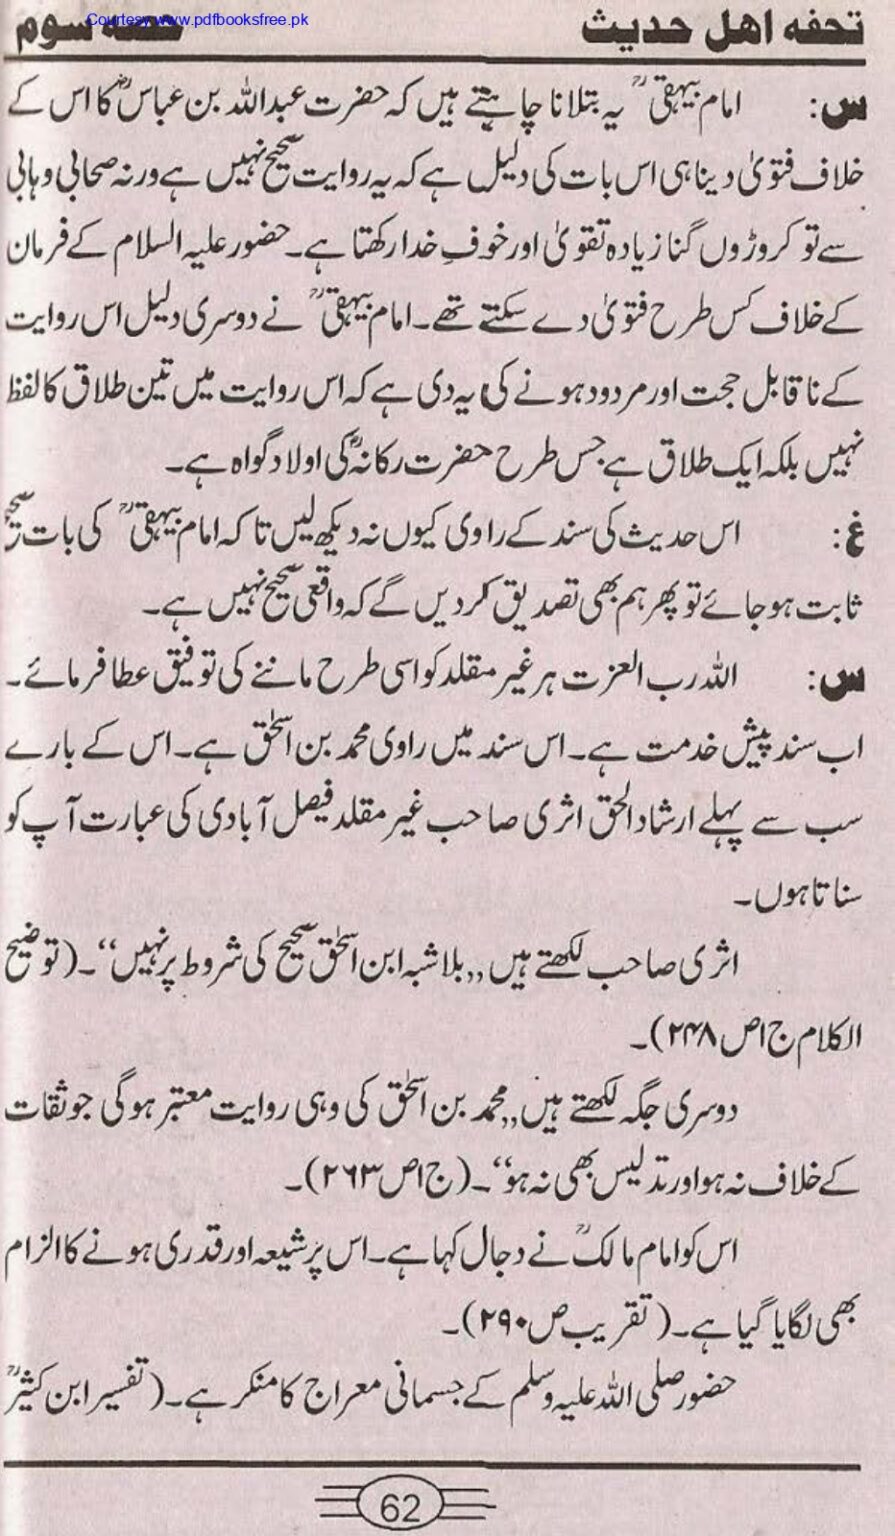 Courtesy www.pdfbooksfree.pk
تحفہ اهل حدیث حصہ سوم
س: امام بیہقیؒ یہ بتلانا چاہتے ہیں کہ حضرت عبداللہ بن عباسؓ کا اس کے
خلاف فتویٰ دینا ہی اس بات کی دلیل ہے کہ یہ روایت صحیح نہیں ہے ورنہ صحابی وہابی
سے تو کروڑوں گنا زیادہ تقویٰ اور خوفِ خدا رکھتا ہے۔ حضور علیہ السلام کے فرمان
کے خلاف کس طرح فتویٰ دے سکتے تھے۔ امام بیہقیؒ نے دوسری دلیل اس روایت
کے ناقابل حجت اور مردود ہونے کی یہ دی ہے کہ اس روایت میں تین طلاق کا لفظ
نہیں بلکہ ایک طلاق ہے جس طرح حضرت رکانہؓ کی اولاد گواہ ہے۔
غ: اس حدیث کی سند کے راوی کیوں نہ دیکھ لیں تاکہ امام بیہقیؒ کی بات صحیح
ثابت ہو جائے تو پھر ہم بھی تصدیق کر دیں گے کہ واقعی صحیح نہیں ہے۔
س: اللہ رب العزت ہر غیر مقلد کو اسی طرح ماننے کی توفیق عطا فرمائے۔
اب سند پیش خدمت ہے۔ اس سند میں راوی محمد بن اسحٰق ہے۔ اس کے بارے
سب سے پہلے ارشاد الحق اثری صاحب غیر مقلد فیصل آبادی کی عبارت آپ کو
سناتا ہوں۔
اثری صاحب لکھتے ہیں ,,بلاشبہ ابن اسحٰق صحیح کی شروط پر نہیں‘‘۔ (توضیح
الکلام ج۱ ص ۲۴۸)۔
دوسری جگہ لکھتے ہیں ,,محمد بن اسحٰق کی وہی روایت معتبر ہوگی جو ثقات
کے خلاف نہ ہو اور تدلیس بھی نہ ہو‘‘۔ (ج۱ ص ۲۶۳)۔
اس کو امام مالکؒ نے دجال کہا ہے۔ اس پر شیعہ اور قدری ہونے کا الزام
بھی لگایا گیا ہے۔ (تقریب ص ۲۹۰)۔
حضور صلی اللہ علیہ وسلم کے جسمانی معراج کا منکر ہے۔ (تفسیر ابن کثیرؒ
62